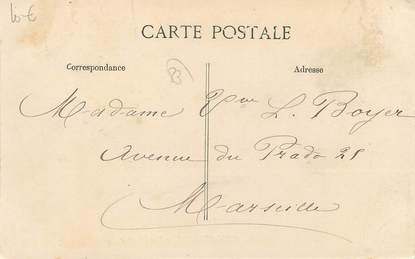 10-€
CARTE POSTALE
Correspondance
Adresse
83
Madame Vve L. Boyer
Avenue du Prado 28
Marseille